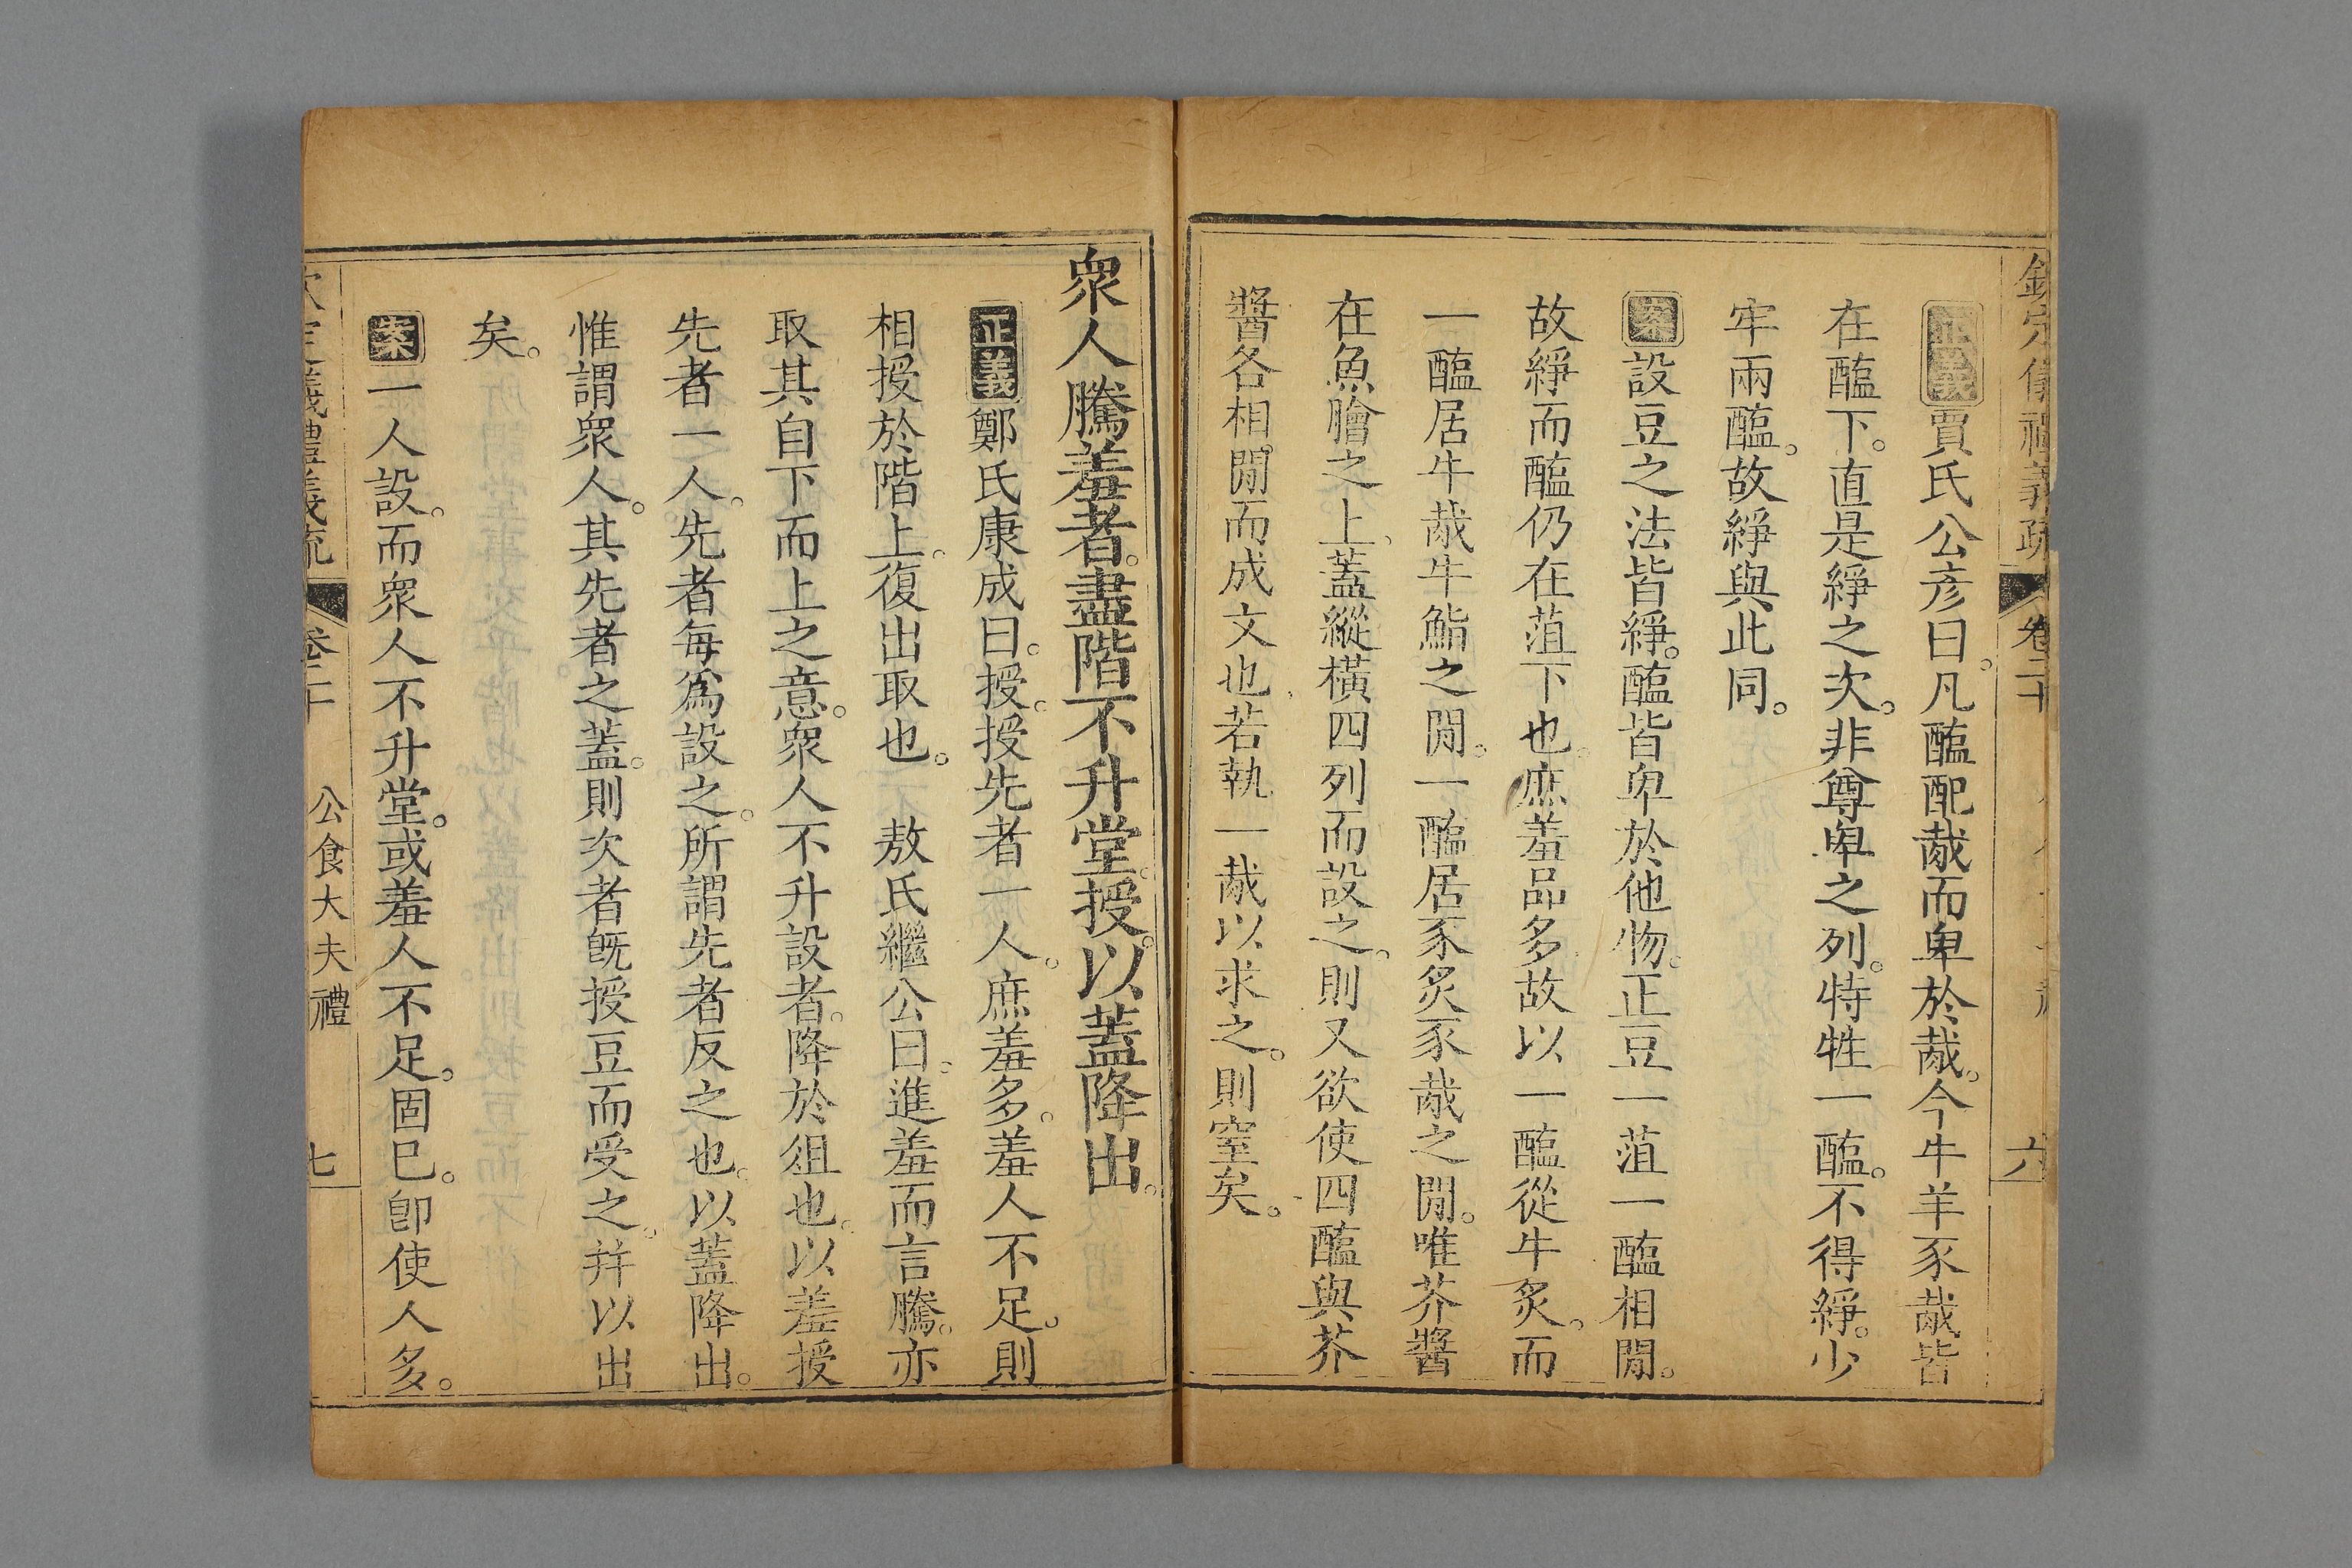 欽定儀禮義疏 卷二十 六
正義賈氏公彦曰。凡醢配胾而卑於胾。今牛羊豕胾皆
在醢下。直是綪之次。非尊卑之列。特牲一醢。不得綪。少
牢兩醢。故綪與此同。
案設豆之法皆綪。醢皆卑於他物。正豆一菹一醢相閒。
故綪而醢仍在菹下也。庶羞品多故以一醢從牛炙。而
一醢居牛胾牛鮨之閒。一醢居豕炙豕胾之閒。唯芥醬
在魚膾之上、蓋縱橫四列而設之。則又欲使四醢與芥
醬各相閒而成文也。若執一胾以求之。則窒矣。
衆人騰羞者。盡階不升堂。授。以蓋降出。
正義鄭氏康成曰。授。授先者一人。庶羞多。羞人不足。則
相授於階上。復出取也。 敖氏繼公曰。進羞而言騰。亦
取其自下而上之意。衆人不升設者。降於俎也。以羞授
先者一人。先者每爲設之。所謂先者反之也。以蓋降出。
惟謂衆人。其先者之蓋。則次者旣授豆而受之。幷以出
矣。
案一人設。而衆人不升堂。或羞人不足。固巳。卽使人多。
欽定儀禮義疏 卷二十 公食大夫禮 七